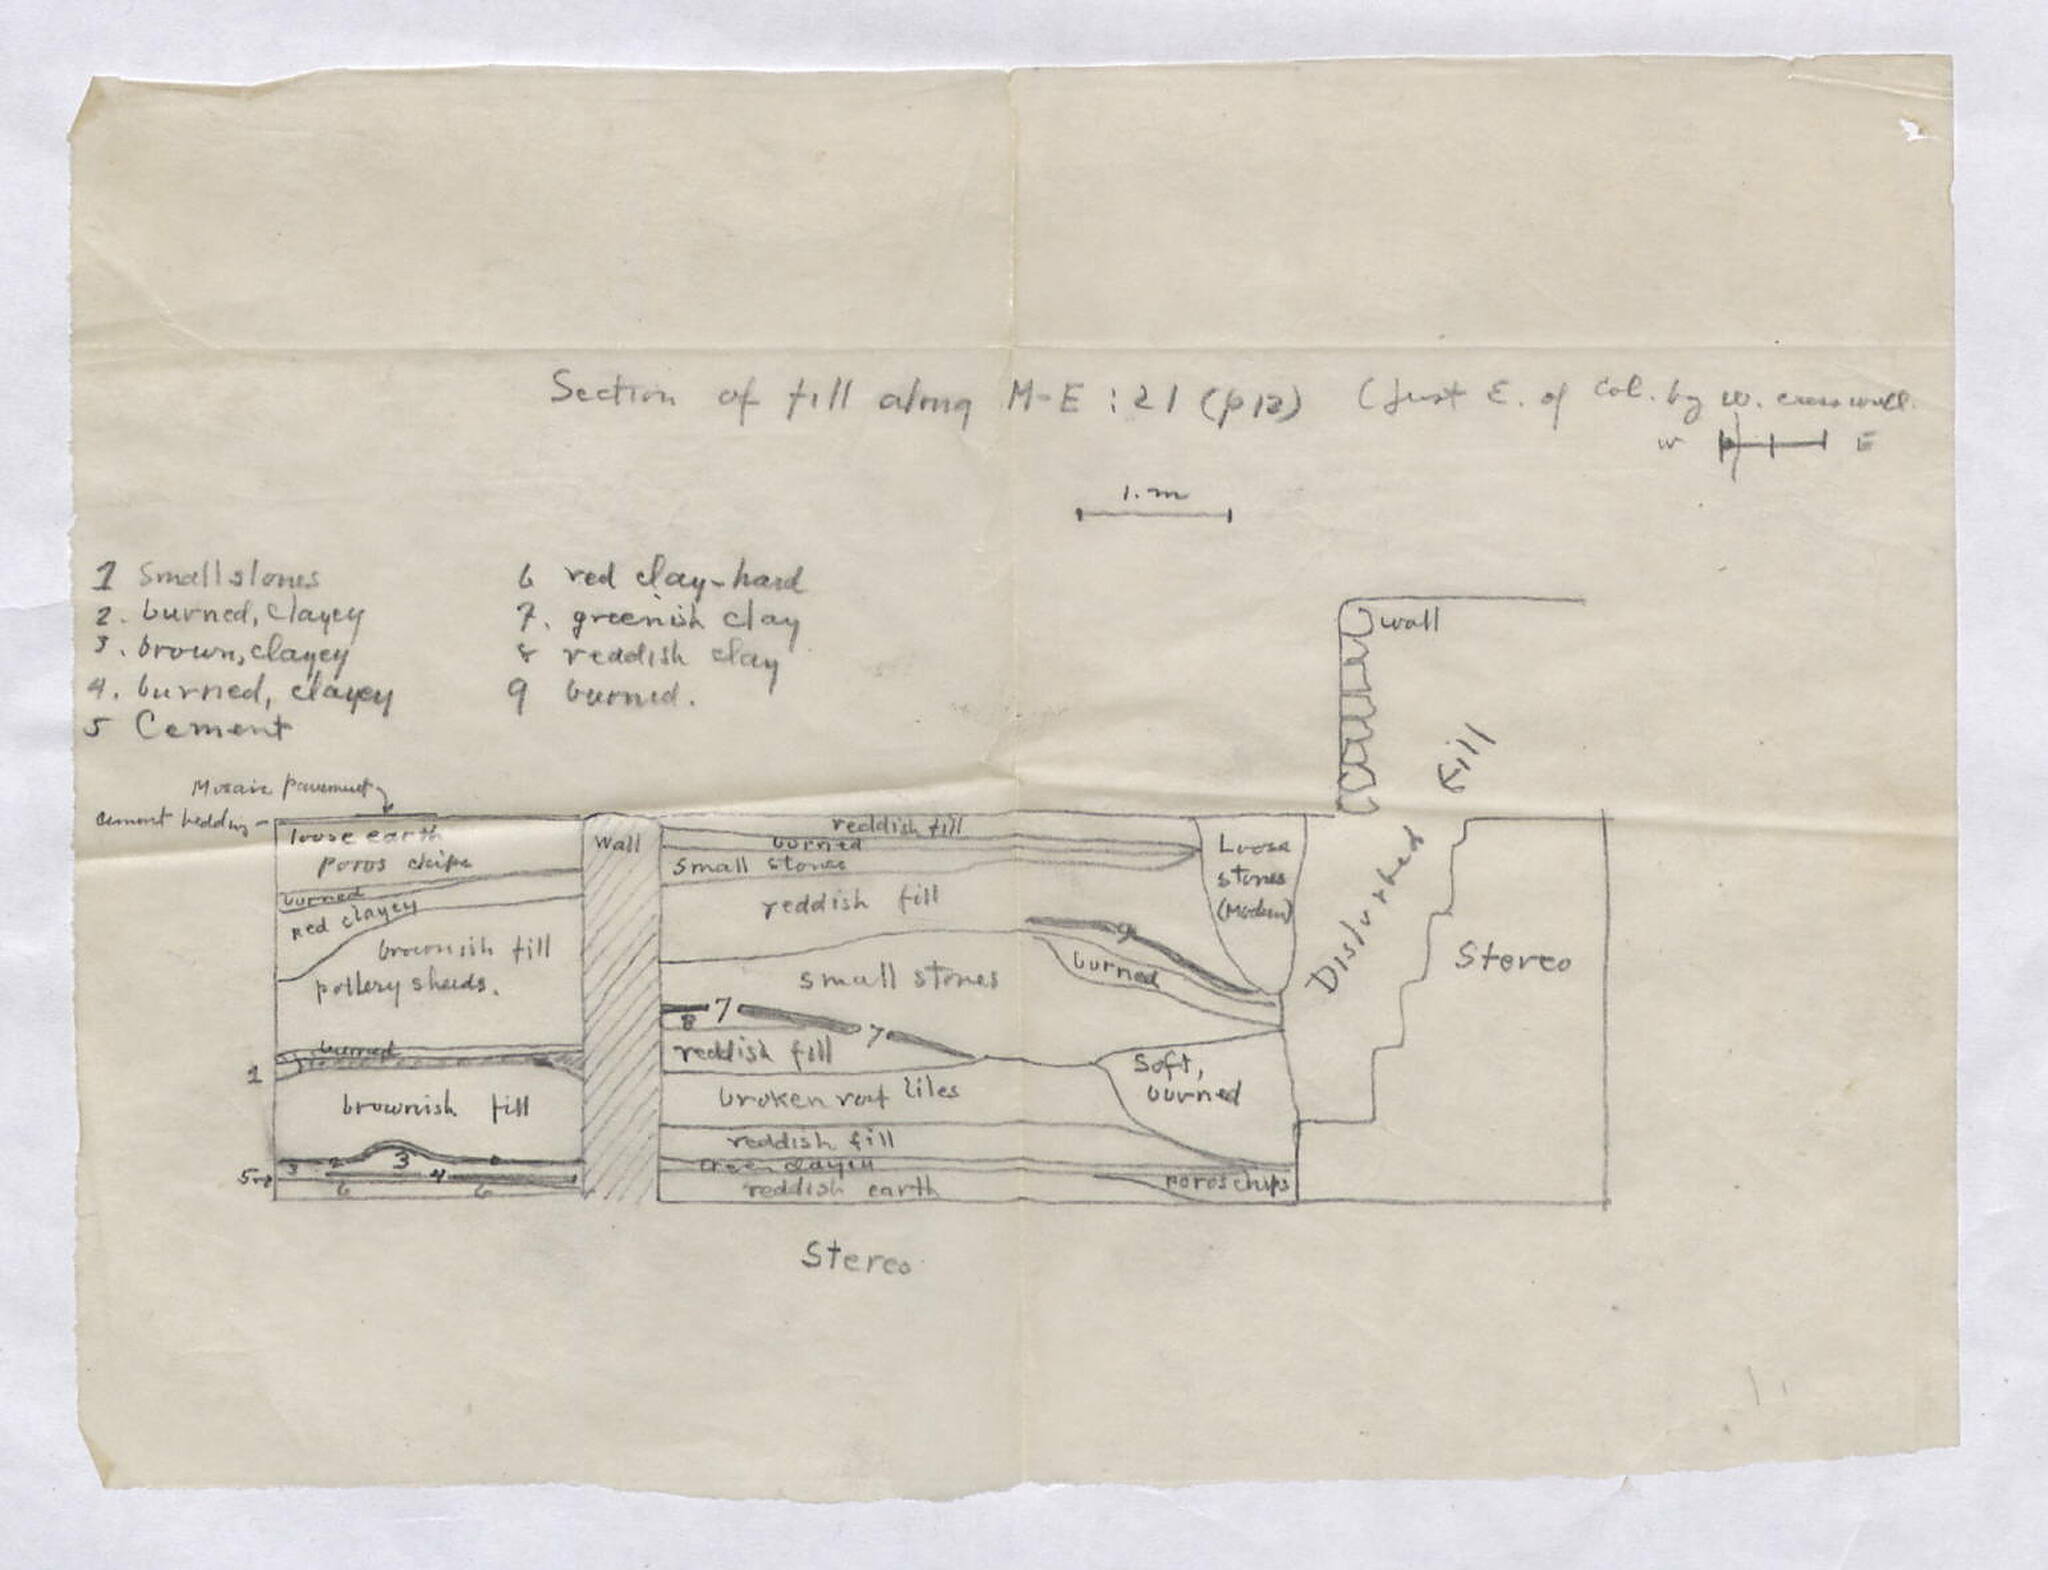 Section of fill along M-E : 21 (p12) (Just E. of Col. by W. cross wall.
W E
1. m
1 Small stones
2. burned, clayey
3. brown, clayey
4. burned, clayey
5 Cement
6 red clay-hard
7. greenish clay
8 reddish clay
9 burned.
wall
Mosaic pavement
Cement bedding
loose earth
poros chips
burned
red clayey
brownish fill
pottery sherds.
burned
1
brownish fill
3 2 3 4
5
6 6
Wall
reddish fill
burned
Small stones
reddish fill
9
burned
small stones
7
8
7
reddish fill
broken roof tiles
reddish fill
Green clayey
reddish earth
Soft,
burned
Poros chips
Loose
stones
(Modern)
Disturbed fill
Stereo
Stereo